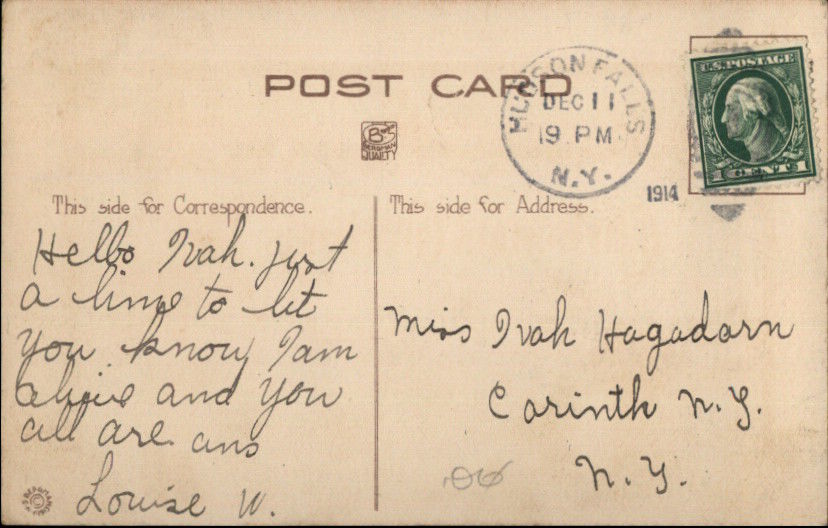 POST CARD
HUDSON FALLS
DEC 11
9 PM
N.Y.
1914
U.S. POSTAGE
1 CENT 1
BS
BERGMAN
QUALITY
This side for Correspondence.
This side for Address.
Hello Ivah. just
a line to let
you know I am
alive and you
all are ans
Louise W.
Miss Ivah Hagadorn
Corinth N.Y.
N.Y.